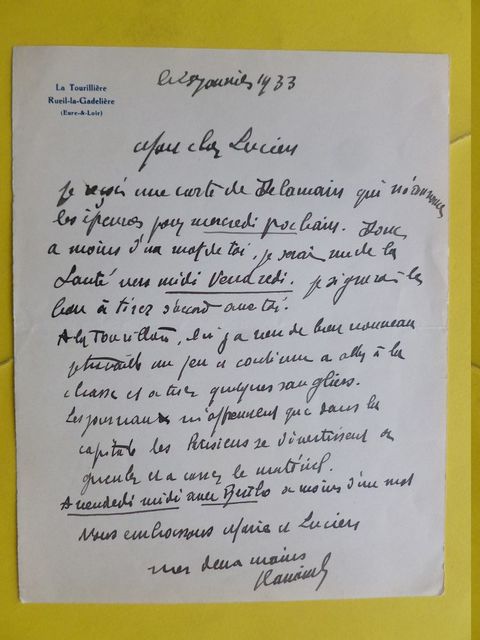 La Tourillière
Rueil-la-Gadelière
(Eure-&-Loir)
le 28 janvier 1933
Mon cher Lucien
je reçois une carte de Delamain qui m'annonce
les épreuves pour mercredi prochain. Donc
a moins d'un mot de toi, je serai rue de la
Santé vers midi Vendredi. je signerai le
bon à tirer d'accord avec toi.
A la Tourillière, il n'y a rien de bien nouveau
je travaille un peu et continue a aller à la
chasse et a tirer quelques sangliers.
Les journaux m'apprennent que dans la
capitale les Parisiens se divertissent a
gueuler et a casser le matériel.
A vendredi midi avec a moins d'un mot
Nous embrassons Maria et Lucien
mes deux mains
Vlaminck